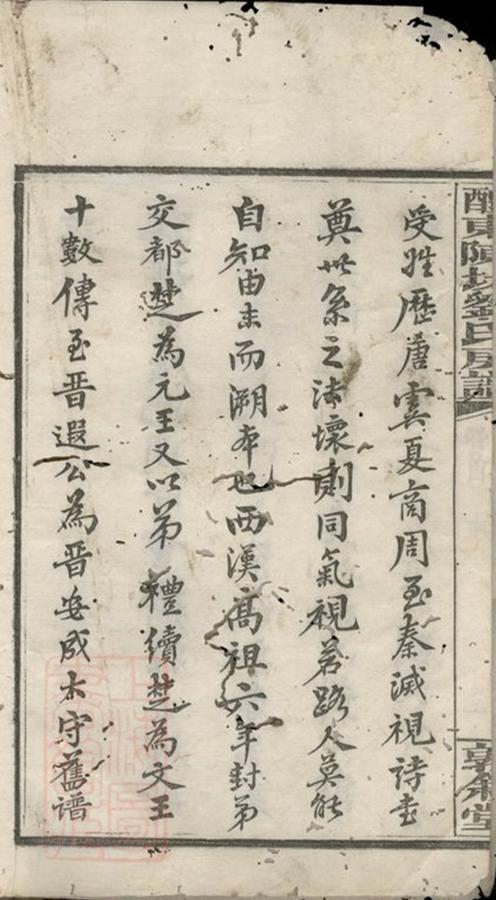 受姓歷唐虞夏商周至秦滅視詩書
奠世系之法壞則同氣視若路人莫能
自知由末而溯本也西漢高祖六年封弟
交都楚為元王又以弟 禮續楚為文王
十數傳至晋遐公為晋安成太守舊譜